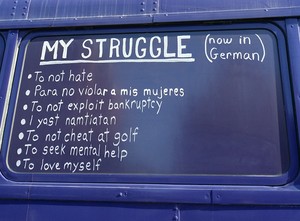 MY STRUGGLE (now in German)
• To not hate
• Para no violar a mis mujeres
• To not exploit bankruptcy
• I yast namtiatan
• To not cheat at golf
• To seek mental help
• To love myself